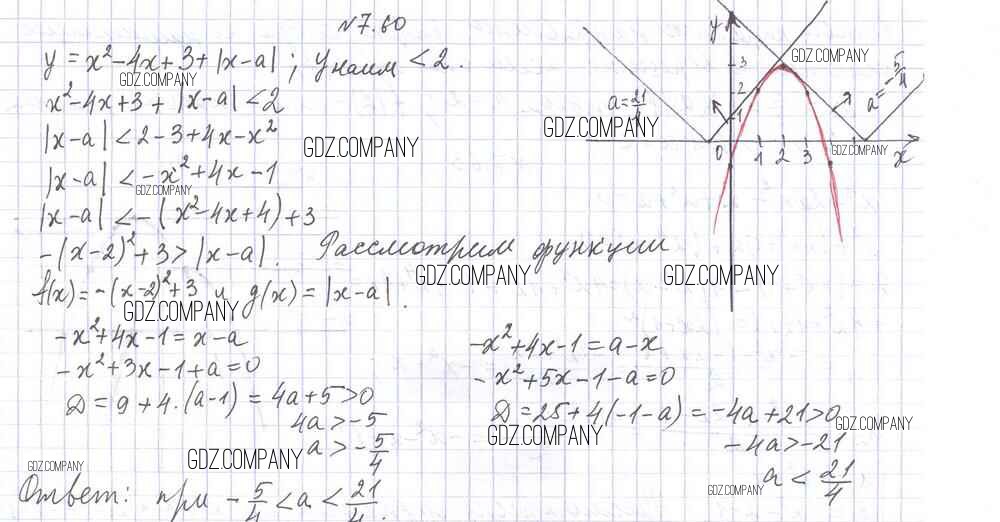 №7.60
y = x² - 4x + 3 + |x - a| ; yнаим < 2.
x² - 4x + 3 + |x - a| < 2
|x - a| < 2 - 3 + 4x - x²
|x - a| < -x² + 4x - 1
|x - a| < -(x² - 4x + 4) + 3
-(x - 2)² + 3 > |x - a|. Рассмотрим функции
f(x) = -(x - 2)² + 3 и g(x) = |x - a|.
-x² + 4x - 1 = x - a
-x² + 3x - 1 + a = 0
D = 9 + 4·(a - 1) = 4a + 5 > 0
4a > -5
a > -5/4
-x² + 4x - 1 = a - x
-x² + 5x - 1 - a = 0
D = 25 + 4(-1 - a) = -4a + 21 > 0
-4a > -21
a < 21/4
Ответ: при -5/4 < a < 21/4.
y
3
2
1
0 1 2 3
x
a = 21/4
a = -5/4
GDZ.COMPANY
GDZ.COMPANY
GDZ.COMPANY
GDZ.COMPANY
GDZ.COMPANY
GDZ.COMPANY
GDZ.COMPANY
GDZ.COMPANY
GDZ.COMPANY
GDZ.COMPANY
GDZ.COMPANY
GDZ.COMPANY
GDZ.COMPANY
GDZ.COMPANY